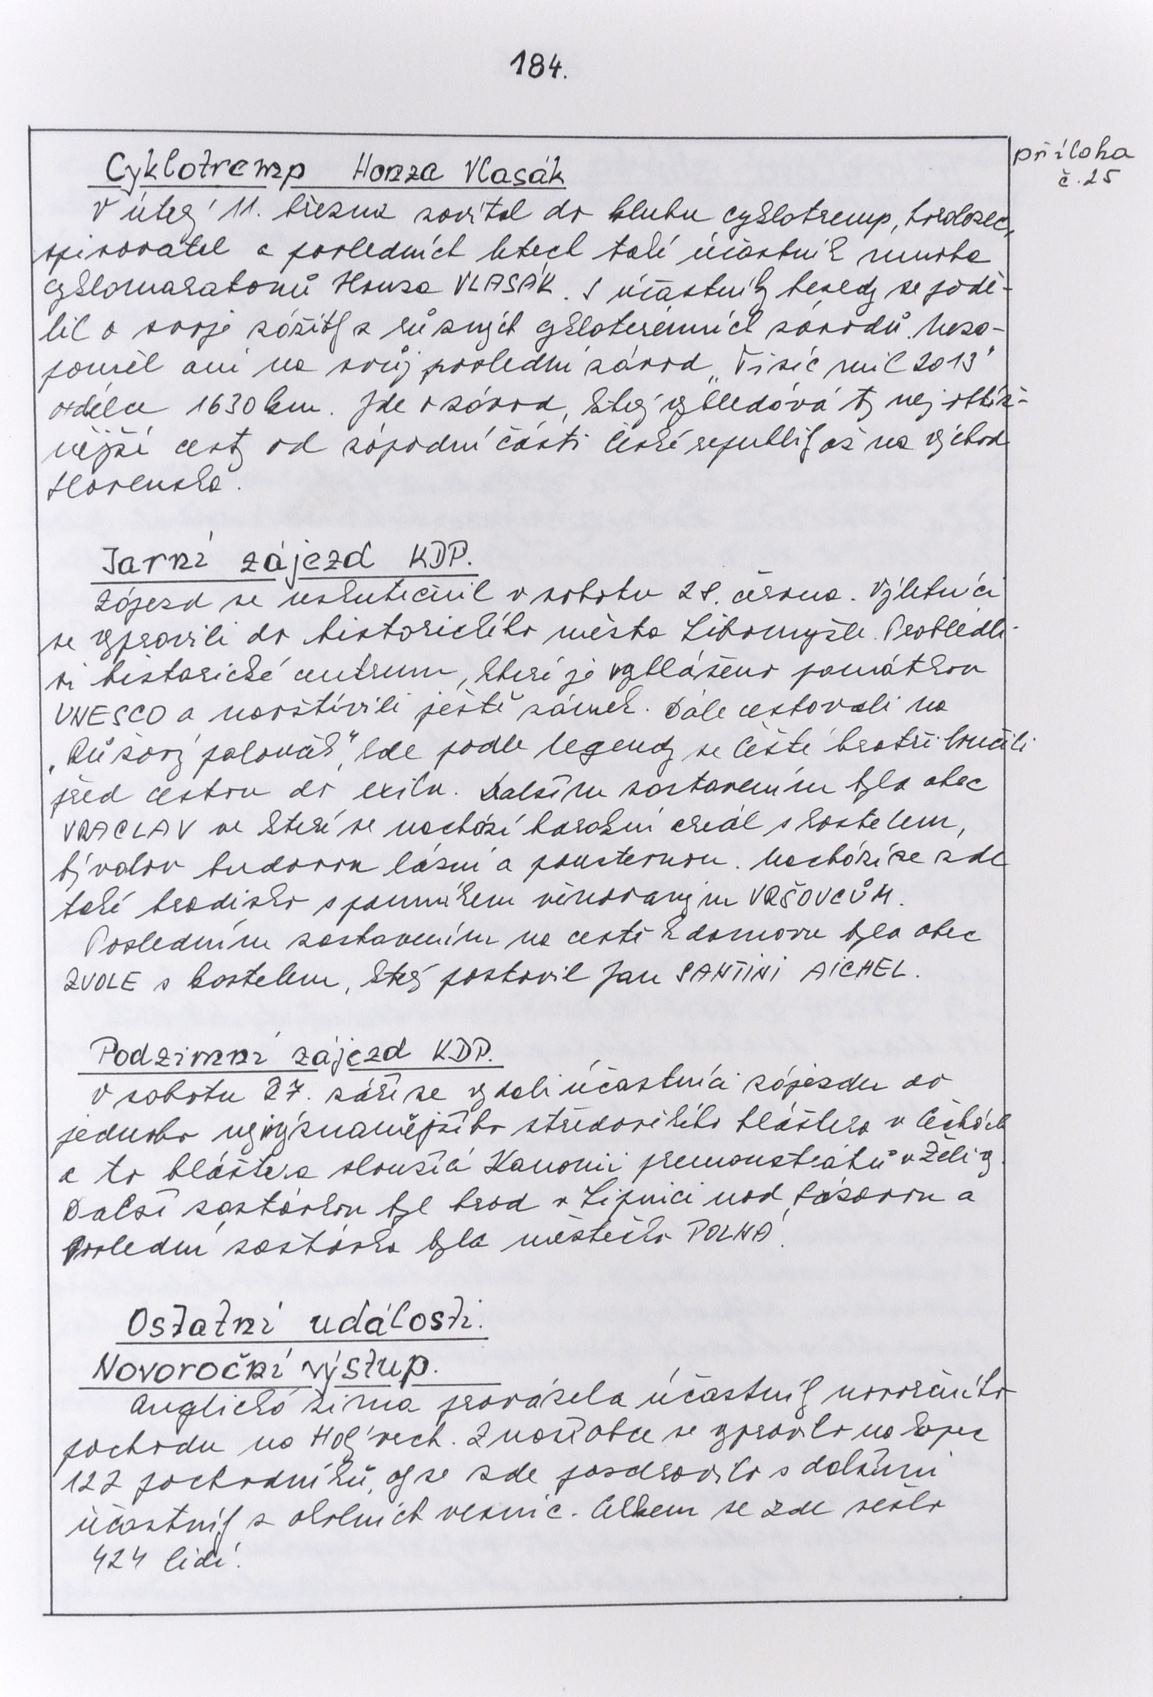 184.
příloha
č. 25
Cyklotremp Honza Vlasák
V úterý 11. března zavítal do klubu cyklotremp, horolezec,
spisovatel a posledních letech také účastník mnoha
cyklomaratonů Honza VLASÁK. S účastníky besedy se podě-
lil o svoje zážitky z různých cykloterénních závodů. Neza-
pomněl ani na svůj poslední závod „Tisíc mil 2013"
o délce 1630 km. Jde o závod, který vyhledává ty nejobtíž-
nější cesty od západní části České republiky až na východ
Slovenska.
Jarní zájezd KDP.
Zájezd se uskutečnil v sobotu 28. června. Výletníci
se vypravili do historického města Litomyšle. Prohlédli
si historické centrum, které je vyhlášeno památkou
UNESCO a navštívili ještě zámek. Dále cestovali na
„Růžový palouček", kde podle legendy se Čeští bratři loučili
před cestou do exilu. Dalším zastavením byla obec
VRACLAV ve které se nachází barokní areál s kostelem,
bývalou budovou lázní a poustevnou. Nachází se zde
také hradisko s pomníkem věnovaným VRŠOVCŮM.
Posledním zastavením na cestě k domovu byla obec
ZVOLE s kostelem, který postavil Jan SANTINI AICHEL.
Podzimní zájezd KDP.
V sobotu 27. září se vydali účastníci zájezdu do
jednoho nejvýznamějšího středověkého kláštera v Čechách
a to kláštera sloužící Kanonii premonstrátů v Želivy.
Další zastávkou byl hrad v Lipnici nad Sázavou a
Poslední zastávka byla městečko POLNÁ.
Ostatní události.
Novoroční výstup.
Anglická zima provázela účastníky novoročního
pochodu na Holý vrch. Z naší obce se vypravilo na kopec
122 pochodníků, aby se zde pozdravilo s dalšími
účastníky z okolních vesnic. Celkem se zde sešlo
424 lidí.